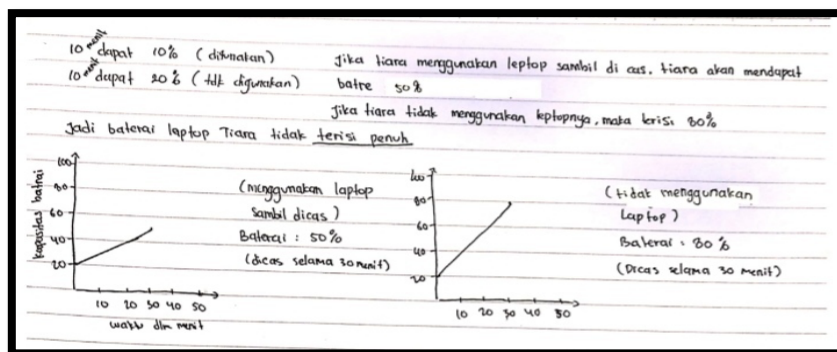 10 menit dapat 10% (digunakan)
10 menit dapat 20% (tdk digunakan)
Jika tiara menggunakan leptop sambil di cas, tiara akan mendapat
batre 50%
Jika tiara tidak menggunakan leptopnya, maka terisi 80%
Jadi baterai laptop Tiara tidak terisi penuh
kapasitas batrai
100
80
60
40
20
10 20 30 40 50
waktu dlm menit
(menggunakan laptop
sambil dicas)
Baterai : 50%
(dicas selama 30 menit)
100
80
60
40
20
10 20 30 40 50
(tidak menggunakan
Laptop)
Baterai : 80%
(Dicas selama 30 menit)